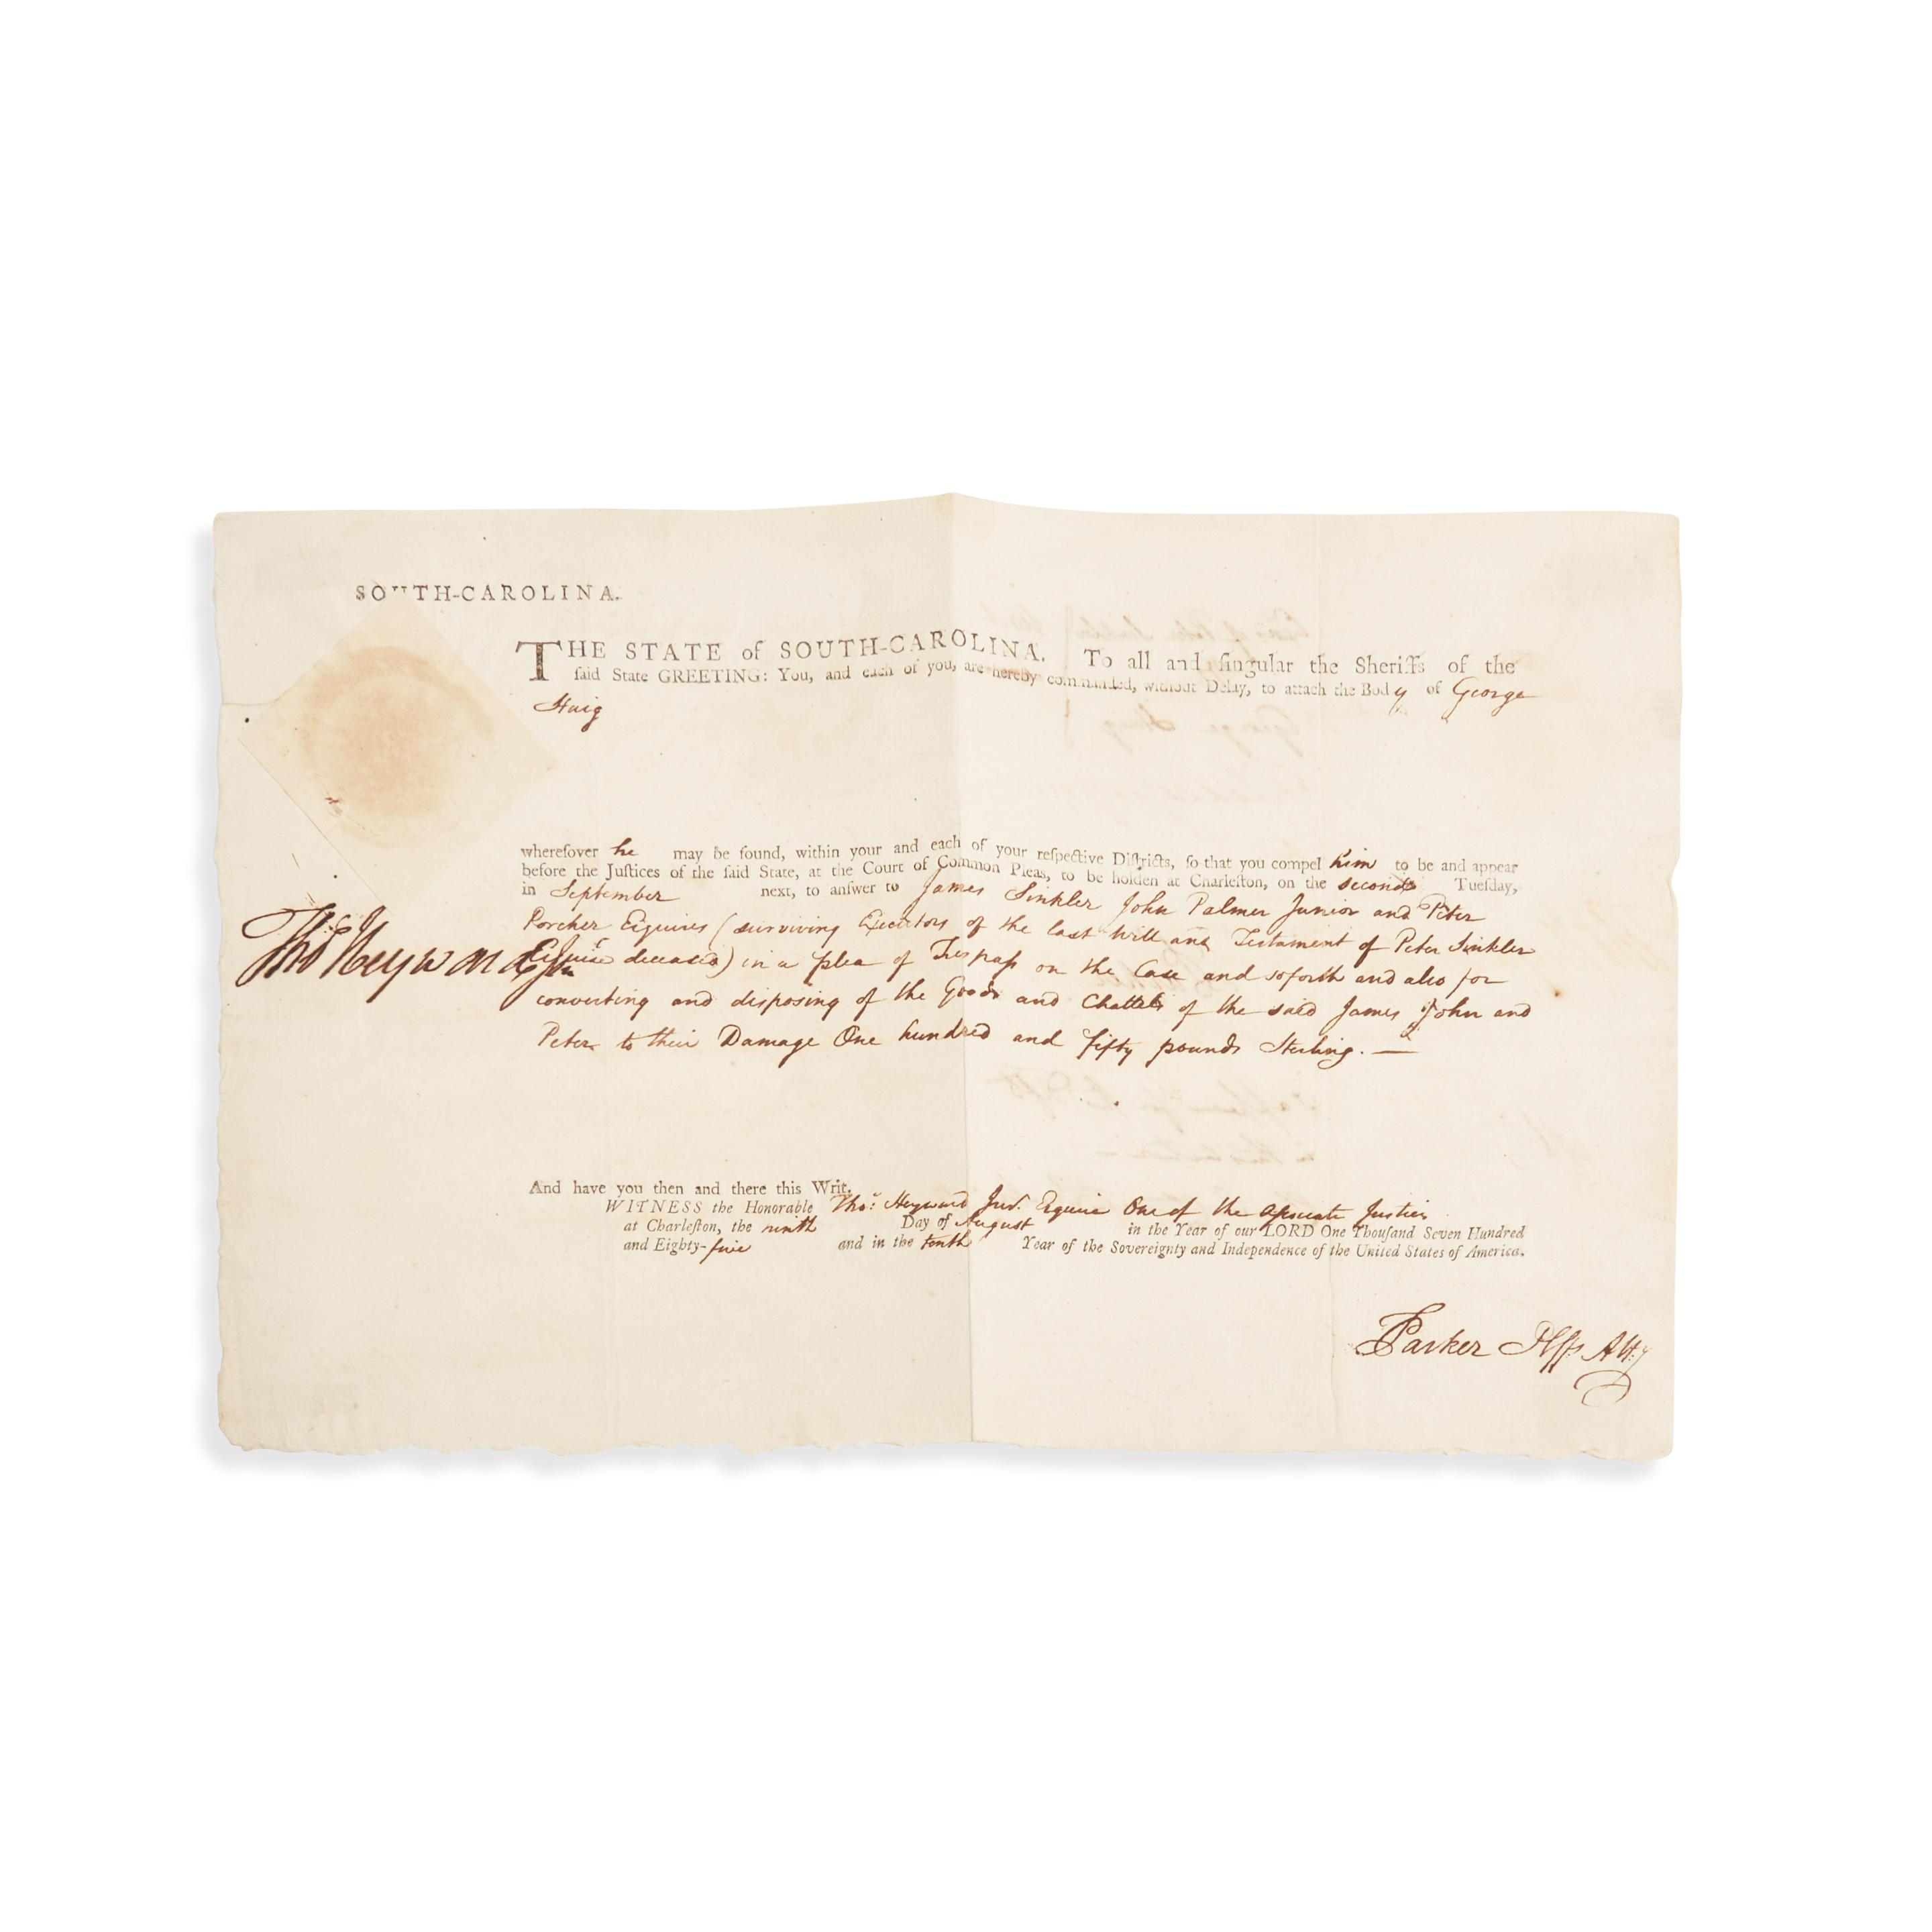 SOUTH-CAROLINA.
THE STATE of SOUTH-CAROLINA. To all and ſingular the Sheriffs of the
ſaid State GREETING: You, and each of you, are hereby commanded, without Delay, to attach the Body of George
Haig
whereſover he may be found, within your and each of your reſpective Diſtricts, ſo that you compel him to be and appear
before the Juſtices of the ſaid State, at the Court of Common Pleas, to be holden at Charleſton, on the second Tueſday,
in September next, to anſwer to James Sinkler John Palmer Junior and Peter
Porcher Esquires (surviving Executors of the last Will and Testament of Peter Sinkler
Esquire deceased) in a plea of Treſpaſs on the Case and soforth and also for
converting and disposing of the Goods and Chattels of the said James John and
Peter to their Damage One hundred and fifty pounds Sterling. —
Thos Heyward Junr
And have you then and there this Writ.
WITNESS the Honorable Thos: Heyward Junr. Esquire One of the Aſsociate Justices
at Charleſton, the ninth Day of August in the Year of our LORD One Thouſand Seven Hundred
and Eighty-five and in the tenth Year of the Sovereignty and Independence of the United States of America.
Parker Plffs Atty